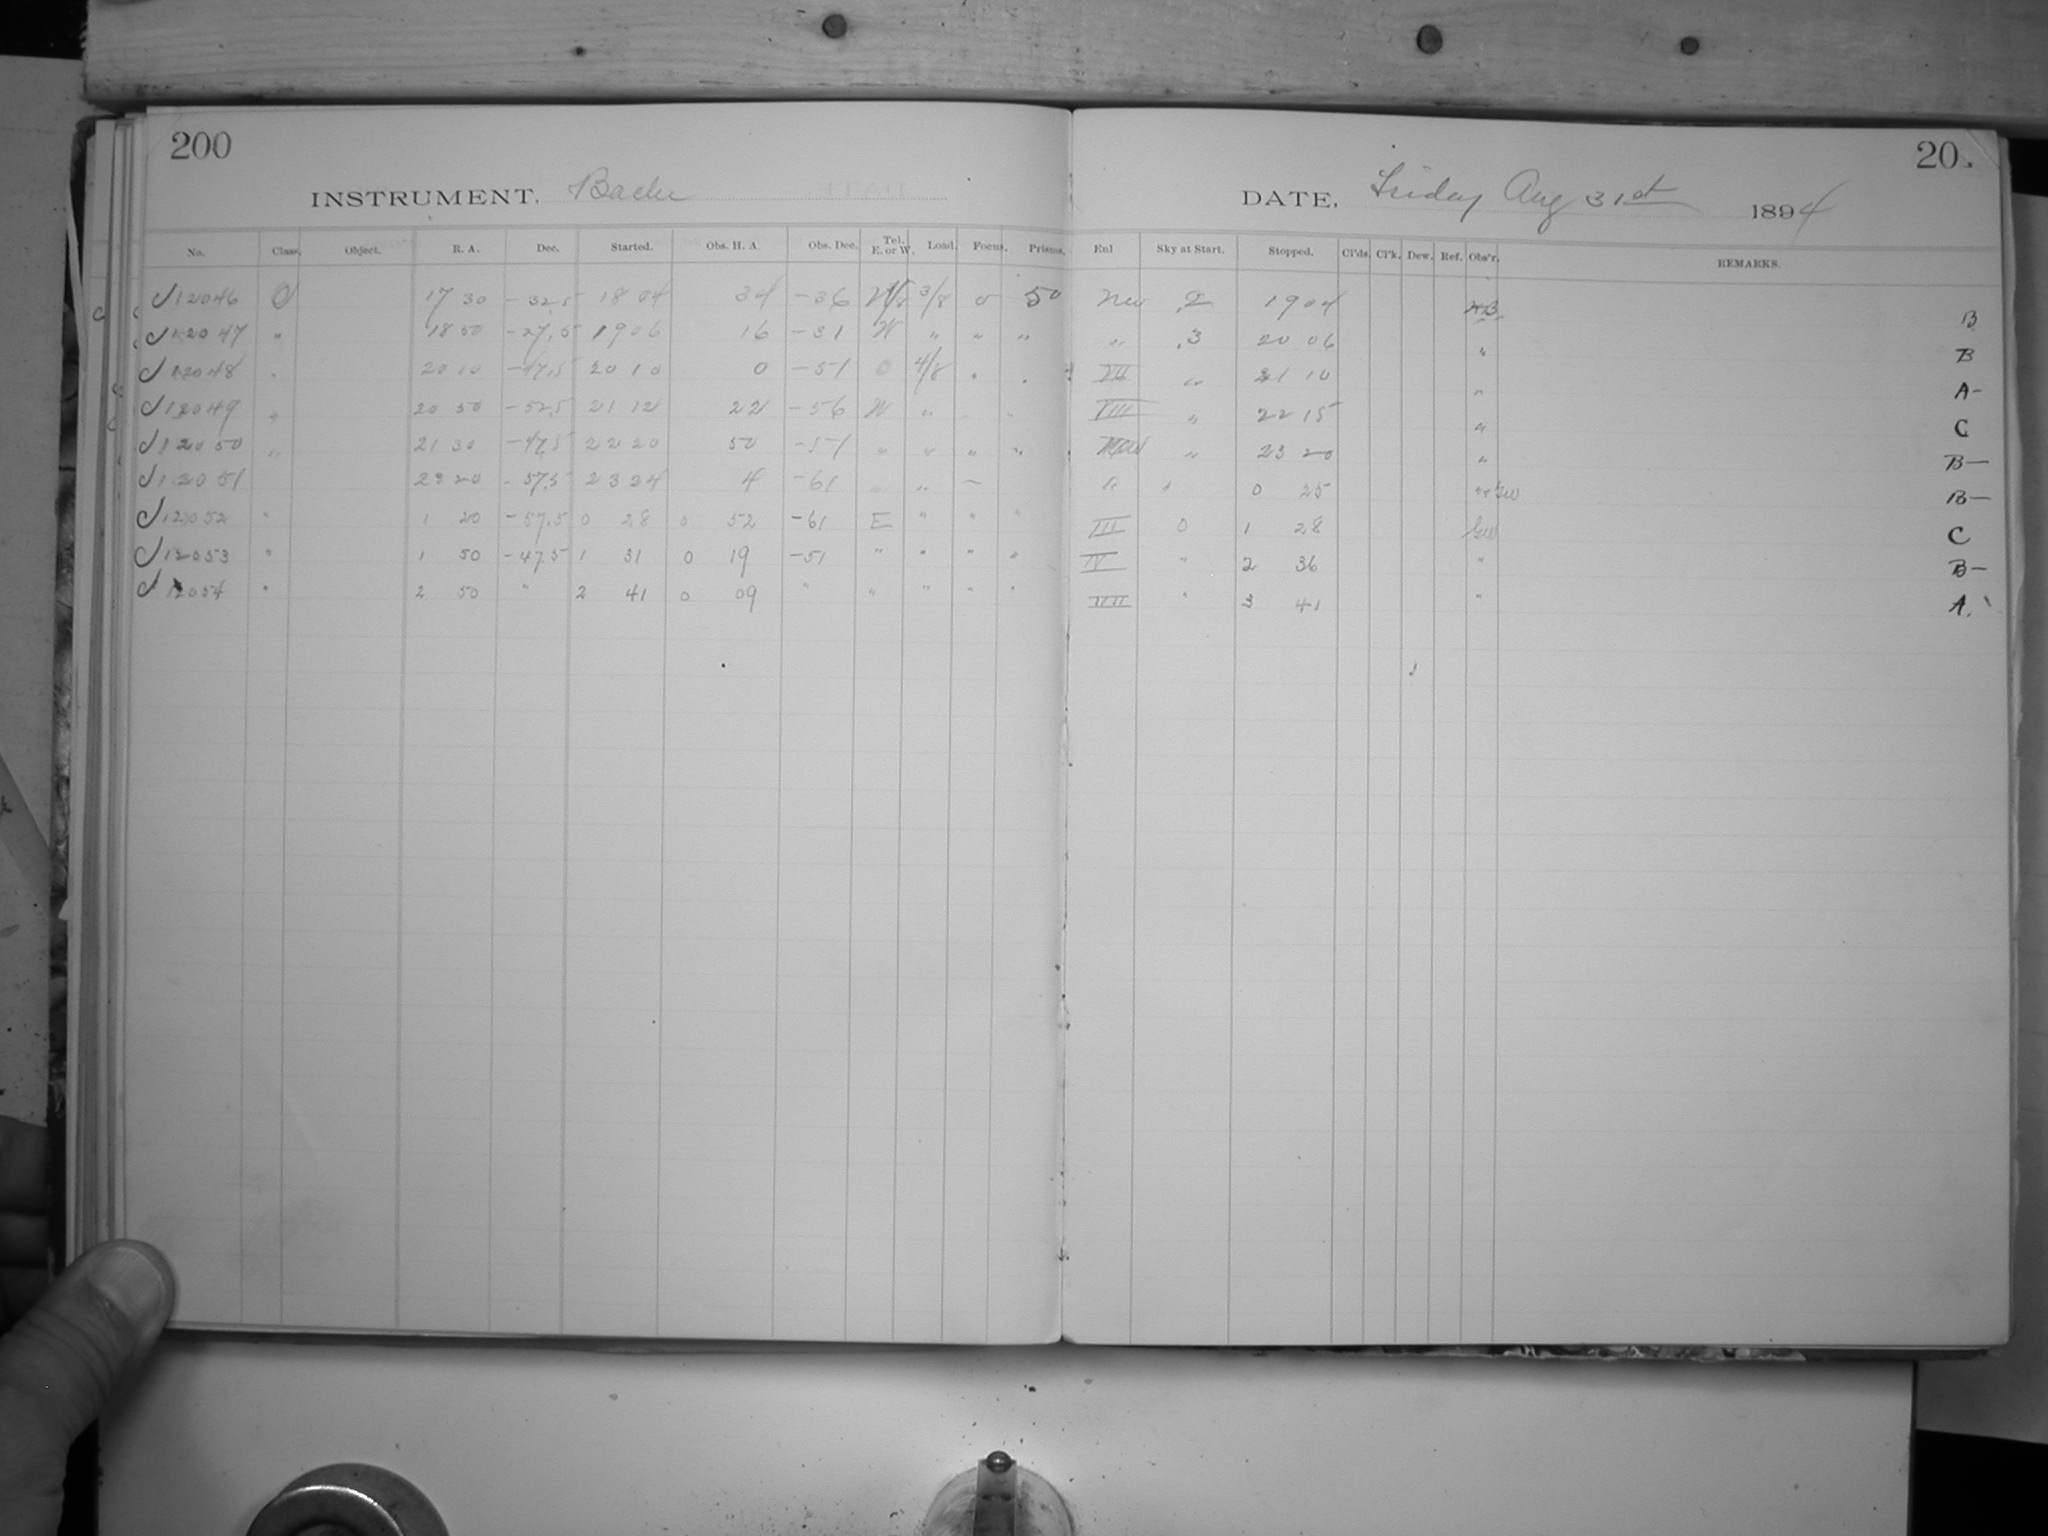 200
20
INSTRUMENT, Bache
DATE, Friday Aug 31st 1894
No. Class. Object. R. A. Dec. Started. Obs. H. A. Obs. Dec. Tel. E. or W. Load. Focus. Prisms. Enl Sky at Start. Stopped. Cl'ds. Cl'k. Dew. Ref. Obs'r. REMARKS.
12046 C 17 30 -32.5 18 04 34 -36 W 3/8 0 50 New 2 19 04 B
12047 " 18 50 -27.5 19 06 16 -31 W " " " " .3 20 06 " B
12048 " 20 10 -47.5 20 10 0 -51 4/8 " " VII " 21 10 " A-
12049 " 20 50 -52.5 21 12 22 -56 W " " VIII " 22 15 " C
12050 " 21 30 -47.5 22 20 50 -51 " " " " " 23 20 " B-
12051 23 20 -57.5 23 24 4 -61 " " " 0 25 " B-
12052 " 1 20 -57.5 0 28 0 52 -61 E " " " III 0 1 28 C
12053 " 1 50 -47.5 1 31 0 19 -51 " " " " IV " 2 36 " B-
12054 " 2 50 " 2 41 0 09 " " " " " VII " 3 41 " A.